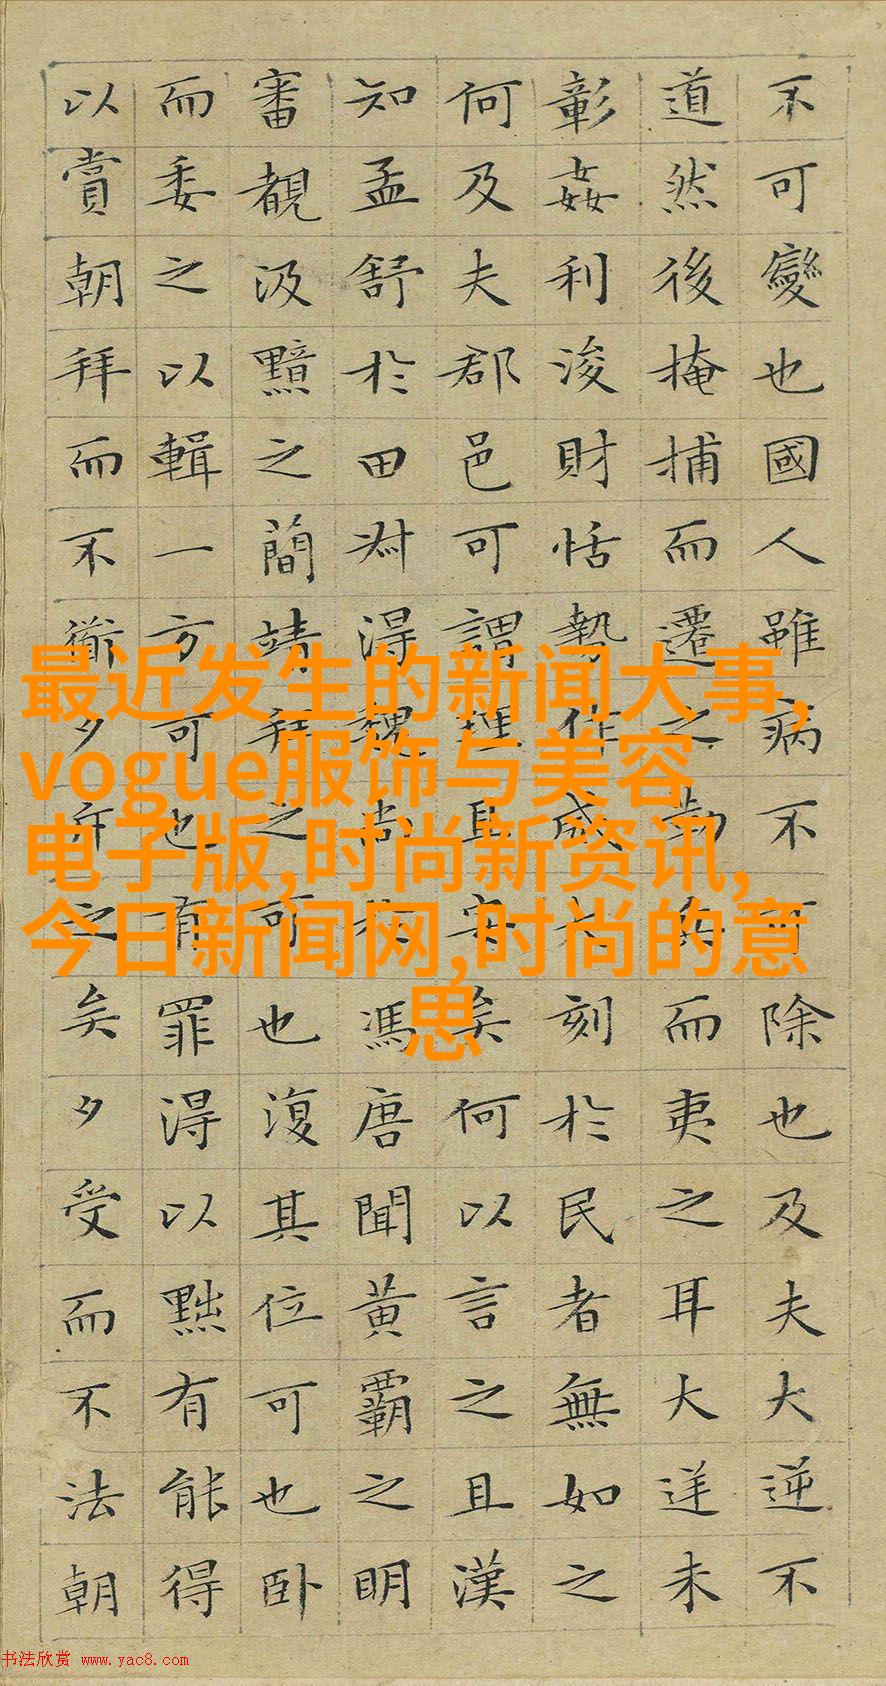 不可變也國人雖病不可除也及夫大逆不
道然後掩捕而遷之勒兵而夷之耳大逆未
彰姦利浚財恬勢作威大刻於民者無如之
何及夫郡邑可謂理且安矣何以言之且漢
知孟舒於田叔得魏尚於馮唐聞黃霸之明
審覩汲黯之簡靖拜之可也復其位可也卧
而委之以輯一方可也有罪得以黜有能得
以賞朝拜而不道夕斥之矣夕受而不法朝
最近发生的新闻大事,
vogue服饰与美容
电子版,时尚新资讯,
今日新闻网,时尚的意
思
书法欣赏 www.yac8.com